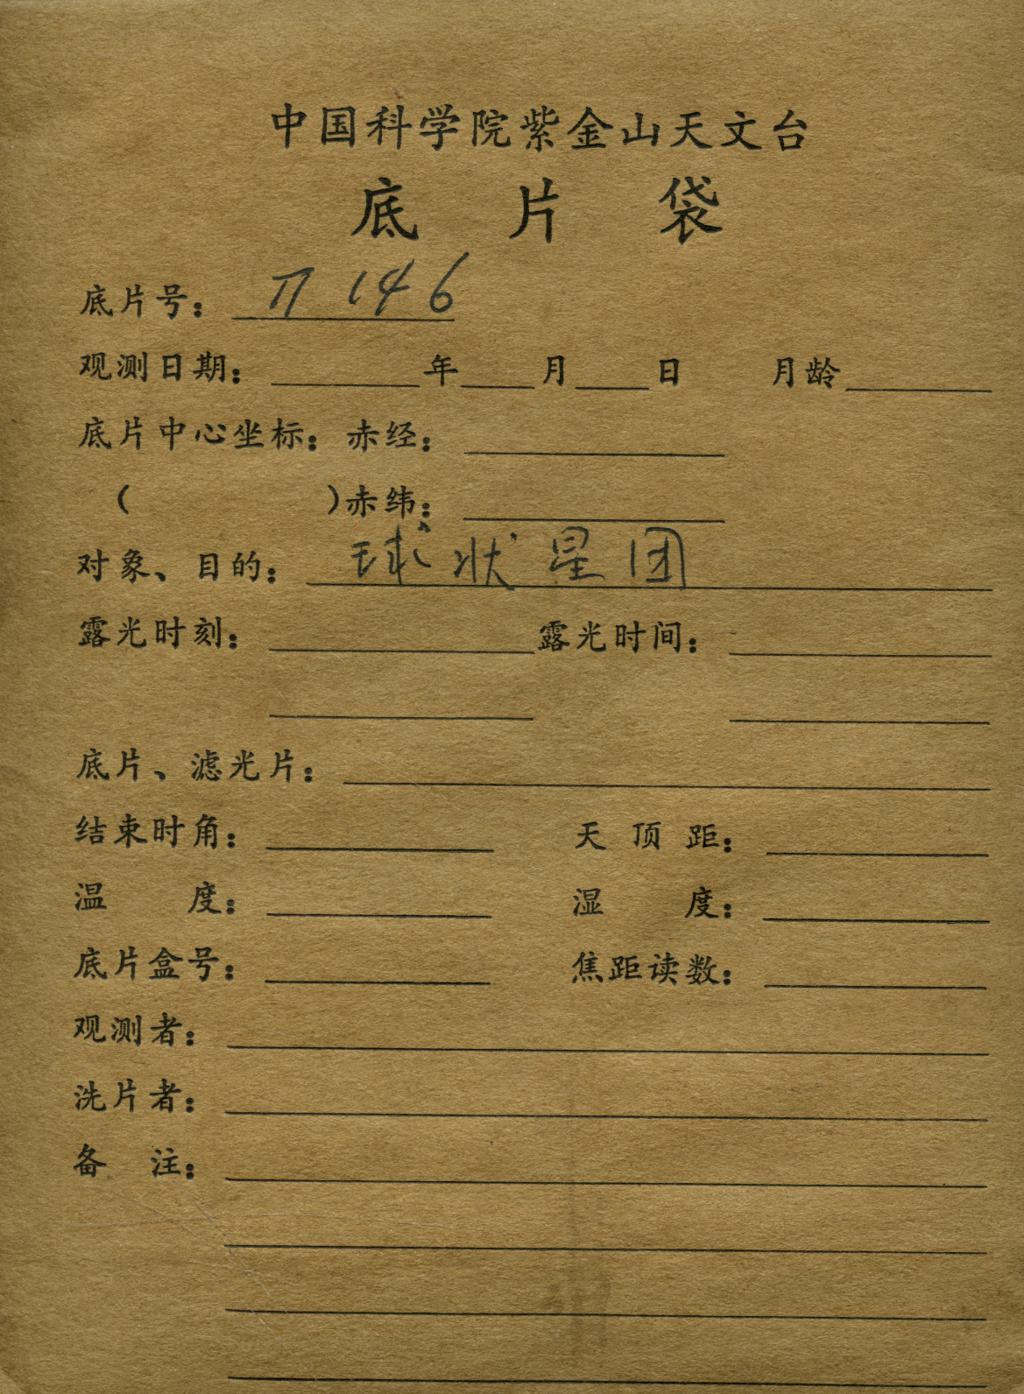 中国科学院紫金山天文台
底片袋
底片号：П 146
观测日期： 年 月 日 月龄
底片中心坐标：赤经：
（ ）赤纬：
对象、目的：球状星团
露光时刻： 露光时间：
底片、滤光片：
结束时角： 天顶距：
温度： 湿度：
底片盒号： 焦距读数：
观测者：
洗片者：
备注：